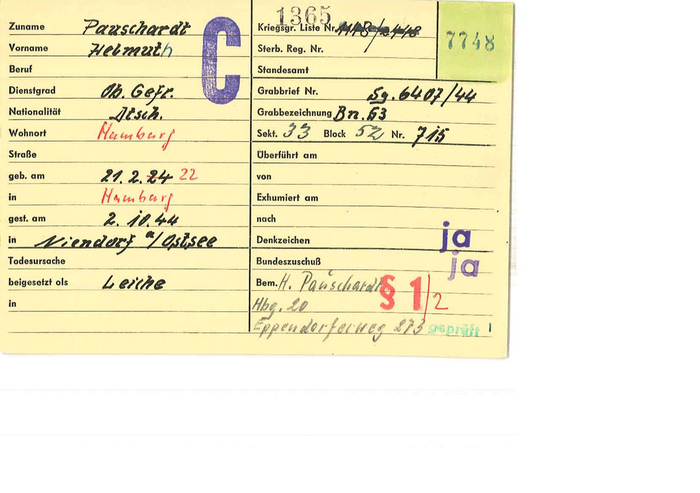 Zuname Pauschardt
Vorname Helmuth
Beruf
Dienstgrad Ob. Gefr.
Nationalität Dtsch.
Wohnort Hamburg
Straße
geb. am 21.2.24 22
in Hamburg
gest. am 2.10.44
in Niendorf a/Ostsee
Todesursache
beigesetzt als Leiche
in
C
1365
Kriegsgr. Liste Nr.
7748
Sterb. Reg. Nr.
Standesamt
Grabbrief Nr. Sg. 6407/44
Grabbezeichnung Bn. 63
Sekt. 33 Block 52 Nr. 715
Überführt am
von
Exhumiert am
nach
Denkzeichen ja
Bundeszuschuß ja
Bem. H. Pauschardt § 1/2
Hbg. 20
Eppendorferweg 273 geprüft